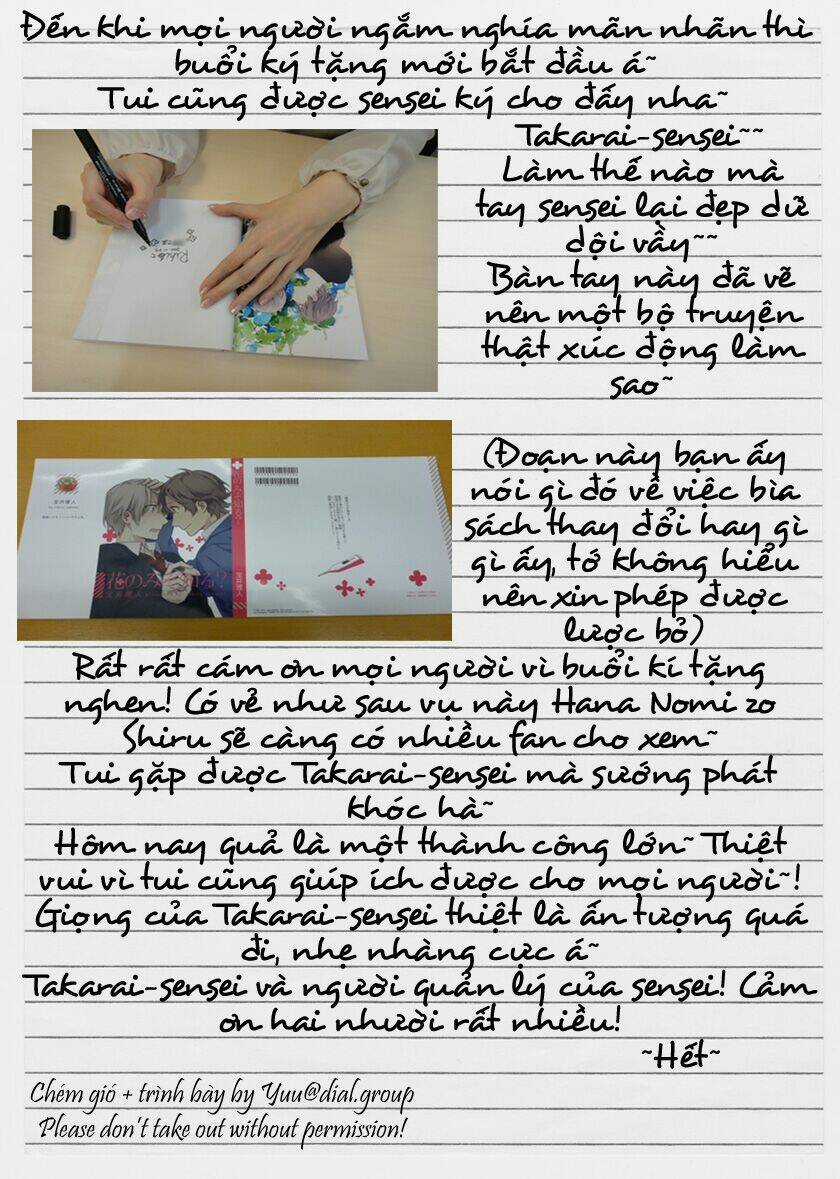 Đến khi mọi người ngắm nghía mãn nhãn thì
buổi ký tặng mới bắt đầu á~
Tui cũng được sensei ký cho đấy nha~
Takarai-sensei~~
Làm thế nào mà
tay sensei lại đẹp dữ
dội vầy~~
Bàn tay này đã vẽ
nên một bộ truyện
thật xúc động làm
sao~
(Đoạn này bạn ấy
nói gì đó về việc bìa
sách thay đổi hay gì
gì ấy, tớ không hiểu
nên xin phép được
lược bỏ)
花のみぞ知る
宝井理人
Rất rất cám ơn mọi người vì buổi kí tặng
nghen! Có vẻ như sau vụ này Hana Nomi zo
Shiru sẽ càng có nhiều fan cho xem~
Tui gặp được Takarai-sensei mà sướng phát
khóc hà~
Hôm nay quả là một thành công lớn~ Thiệt
vui vì tui cũng giúp ích được cho mọi người~!
Giọng của Takarai-sensei thiệt là ấn tượng quá
đi, nhẹ nhàng cực á~
Takarai-sensei và người quản lý của sensei! Cảm
ơn hai nhười rất nhiều!
~Hết~
Chém gió + trình bày by Yuu@dial.group
Please don't take out without permission!